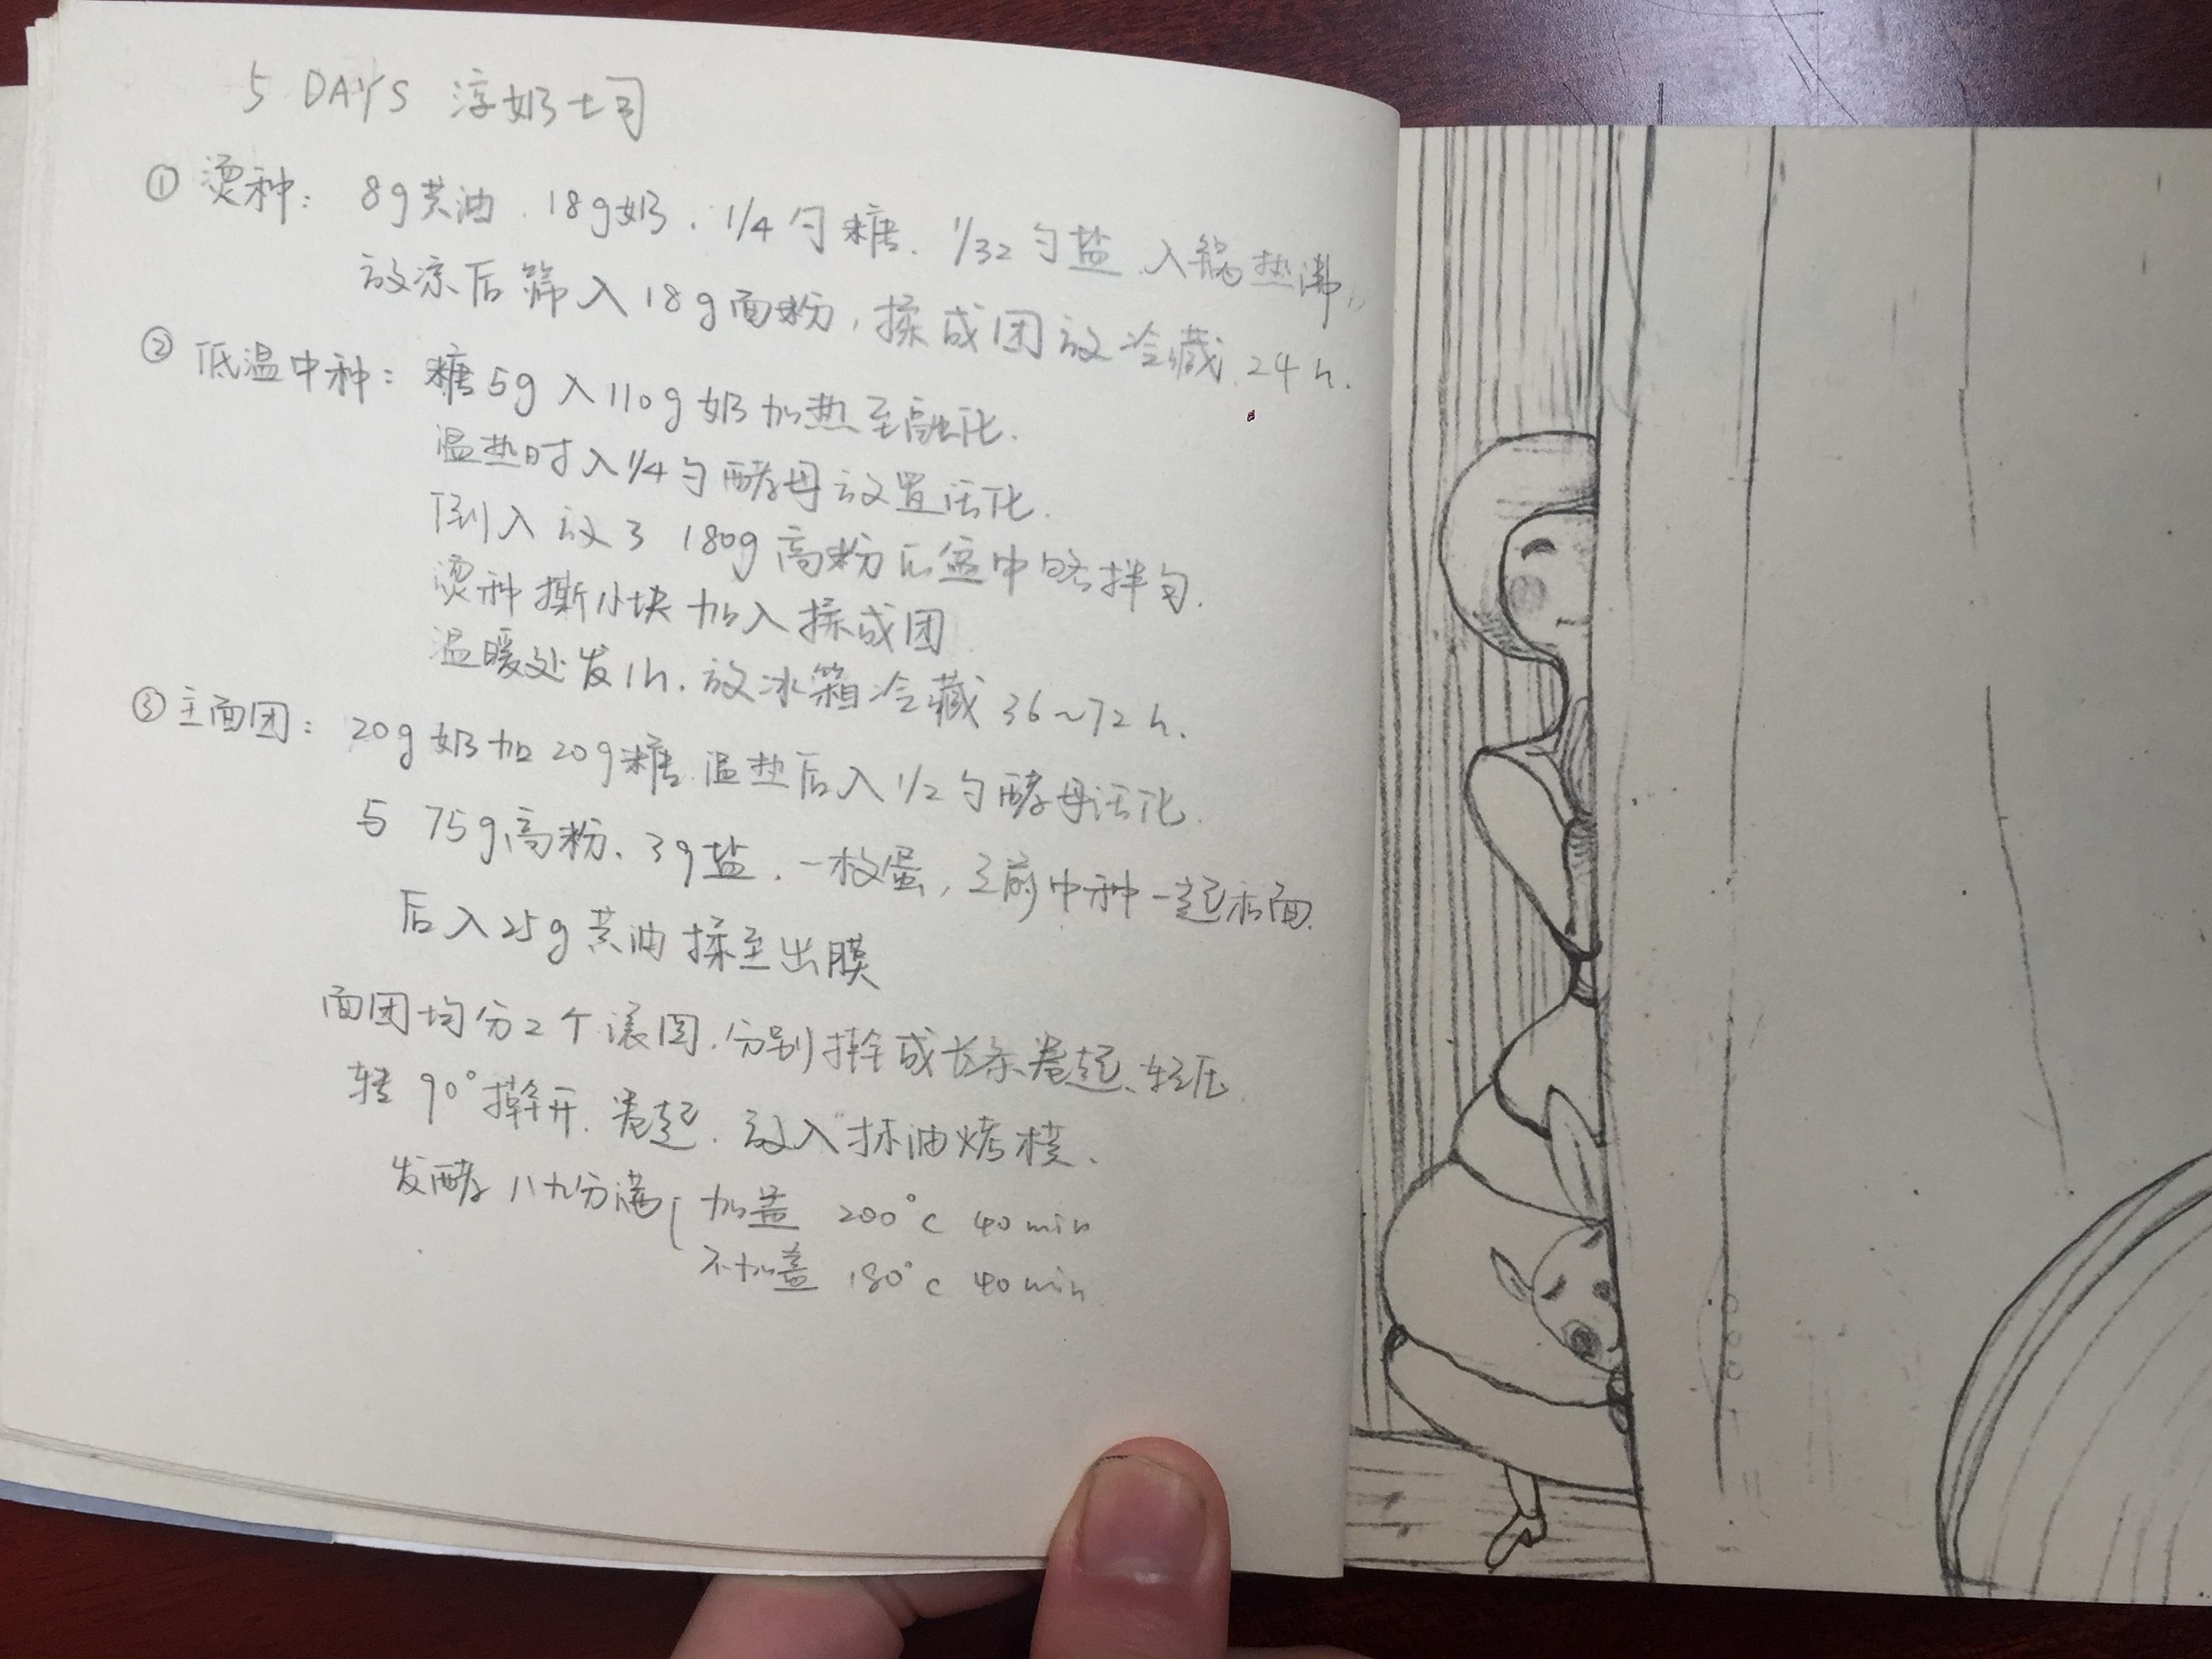 5 DAYS 淳奶土司
① 烫种: 8g黄油、18g奶、1/4勺糖、1/32勺盐入锅热沸,
放凉后筛入18g面粉,揉成团放冷藏24h.
② 低温中种: 糖5g入110g奶加热至融化.
温热时入1/4勺酵母放置活化.
倒入放了180g高粉的盆中略拌匀.
烫种撕小块加入揉成团
温暖处发1h.放冰箱冷藏36~72h.
③ 主面团: 20g奶加20g糖.温热后入1/2勺酵母活化.
与75g高粉、3g盐、一枚蛋,之前中种一起和面.
后入25g黄油揉至出膜
面团均分2个滚圆.分别擀成长条卷起、轻压
转90°擀开.卷起.放入抹油烤模.
发酵八九分满 加盖 200°C 40min
不加盖 180°C 40min